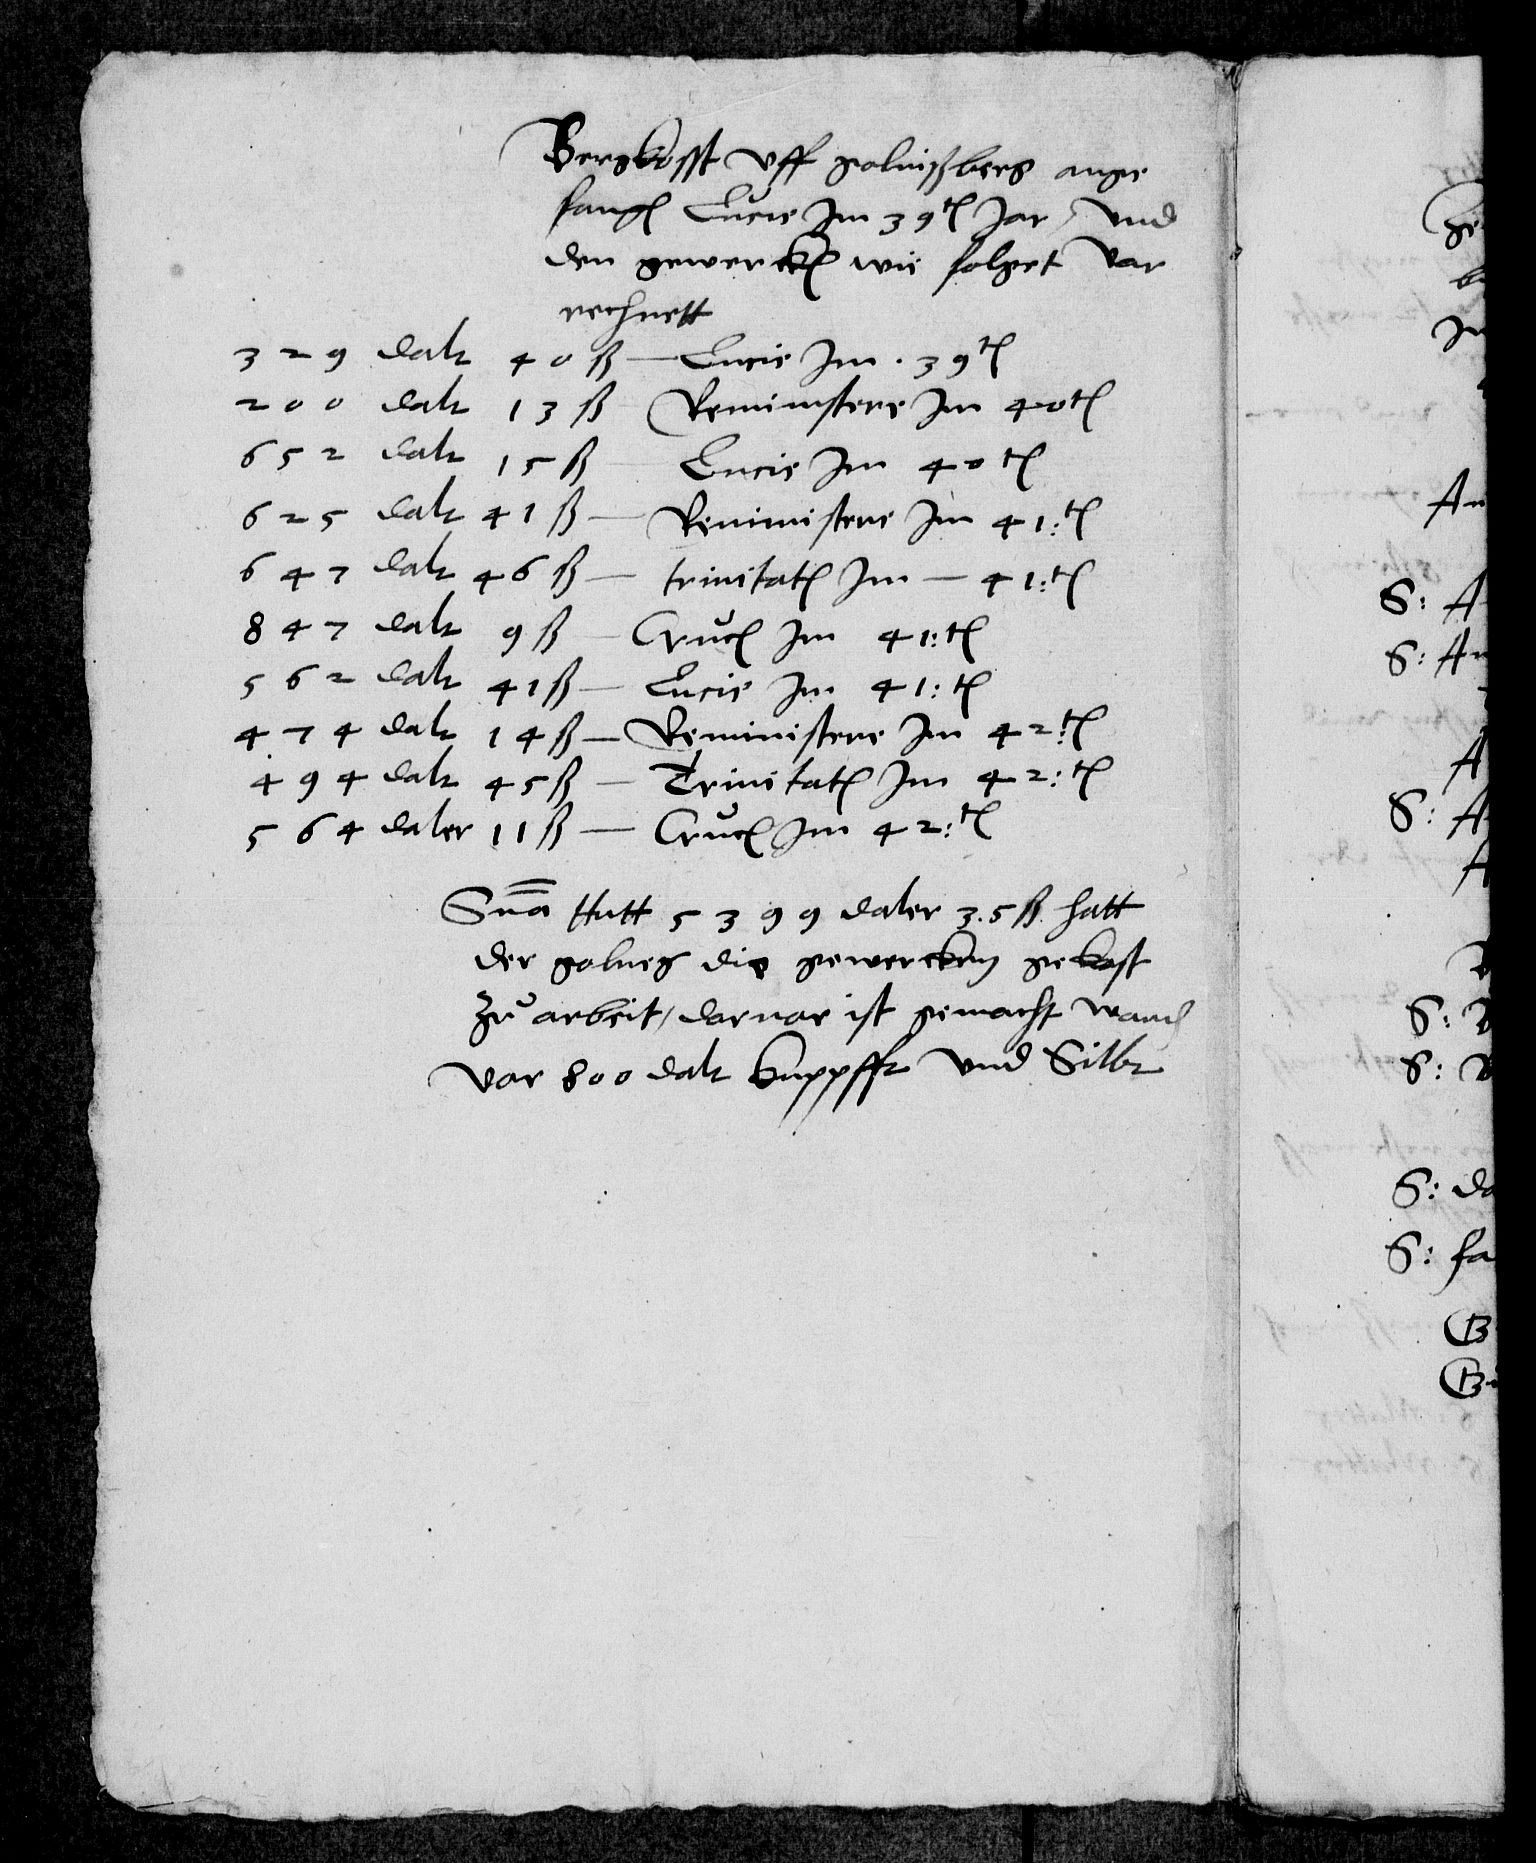 Bergkosst vff golnißberg ange
fangen Lucie Im 39ten Jar / vnd
den gewercken wie folget vor
rechnett
329 daler 40 ß — Lucie Im . 39ten
200 daler 13 ß — Reministere Im 40ten
652 daler 15 ß — Lucie Im 40ten
625 daler 41 ß — Reministere Im 41:ten
647 daler 46 ß — trinitaten Im — 41:ten
847 daler 9 ß — Crucis Im 41:ten
562 daler 41 ß — Lucie Im 41:ten
474 daler 14 ß — Reministere Im 42:ten
494 daler 45 ß — Trinitaten Im 42:ten
564 daler 11 ß — Crucis Im 42:ten
Suma thutt 5399 daler 3.5 ß hatt
der golneg die gewercken gekost
zu arbeit / daruor ist gemacht
vor 800 daler kuppffer vnd Silber
ge
In
An
S: A
S: An
A
S: A
A
S:
S:
S: da
S: fa
B
B